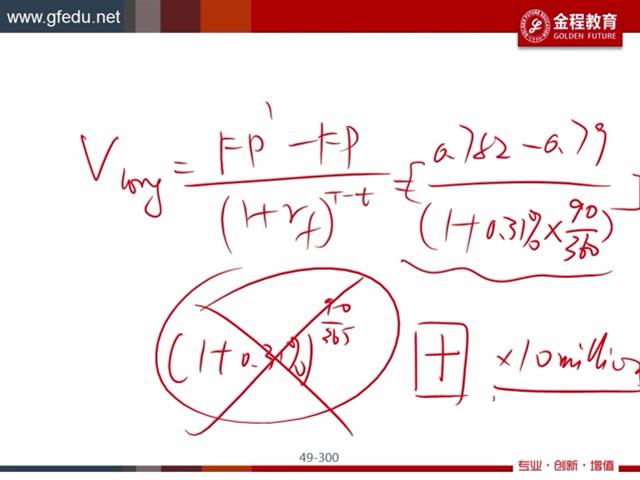 www.gfedu.net
金程教育
GOLDEN FUTURE
V long = FP' - FP / (1+rf)^T-t = [0.782 - 0.79 / (1+0.31% × 90/360)]
(1+0.31%)^90/365
+ ×10 million
49-300
专业·创新·增值